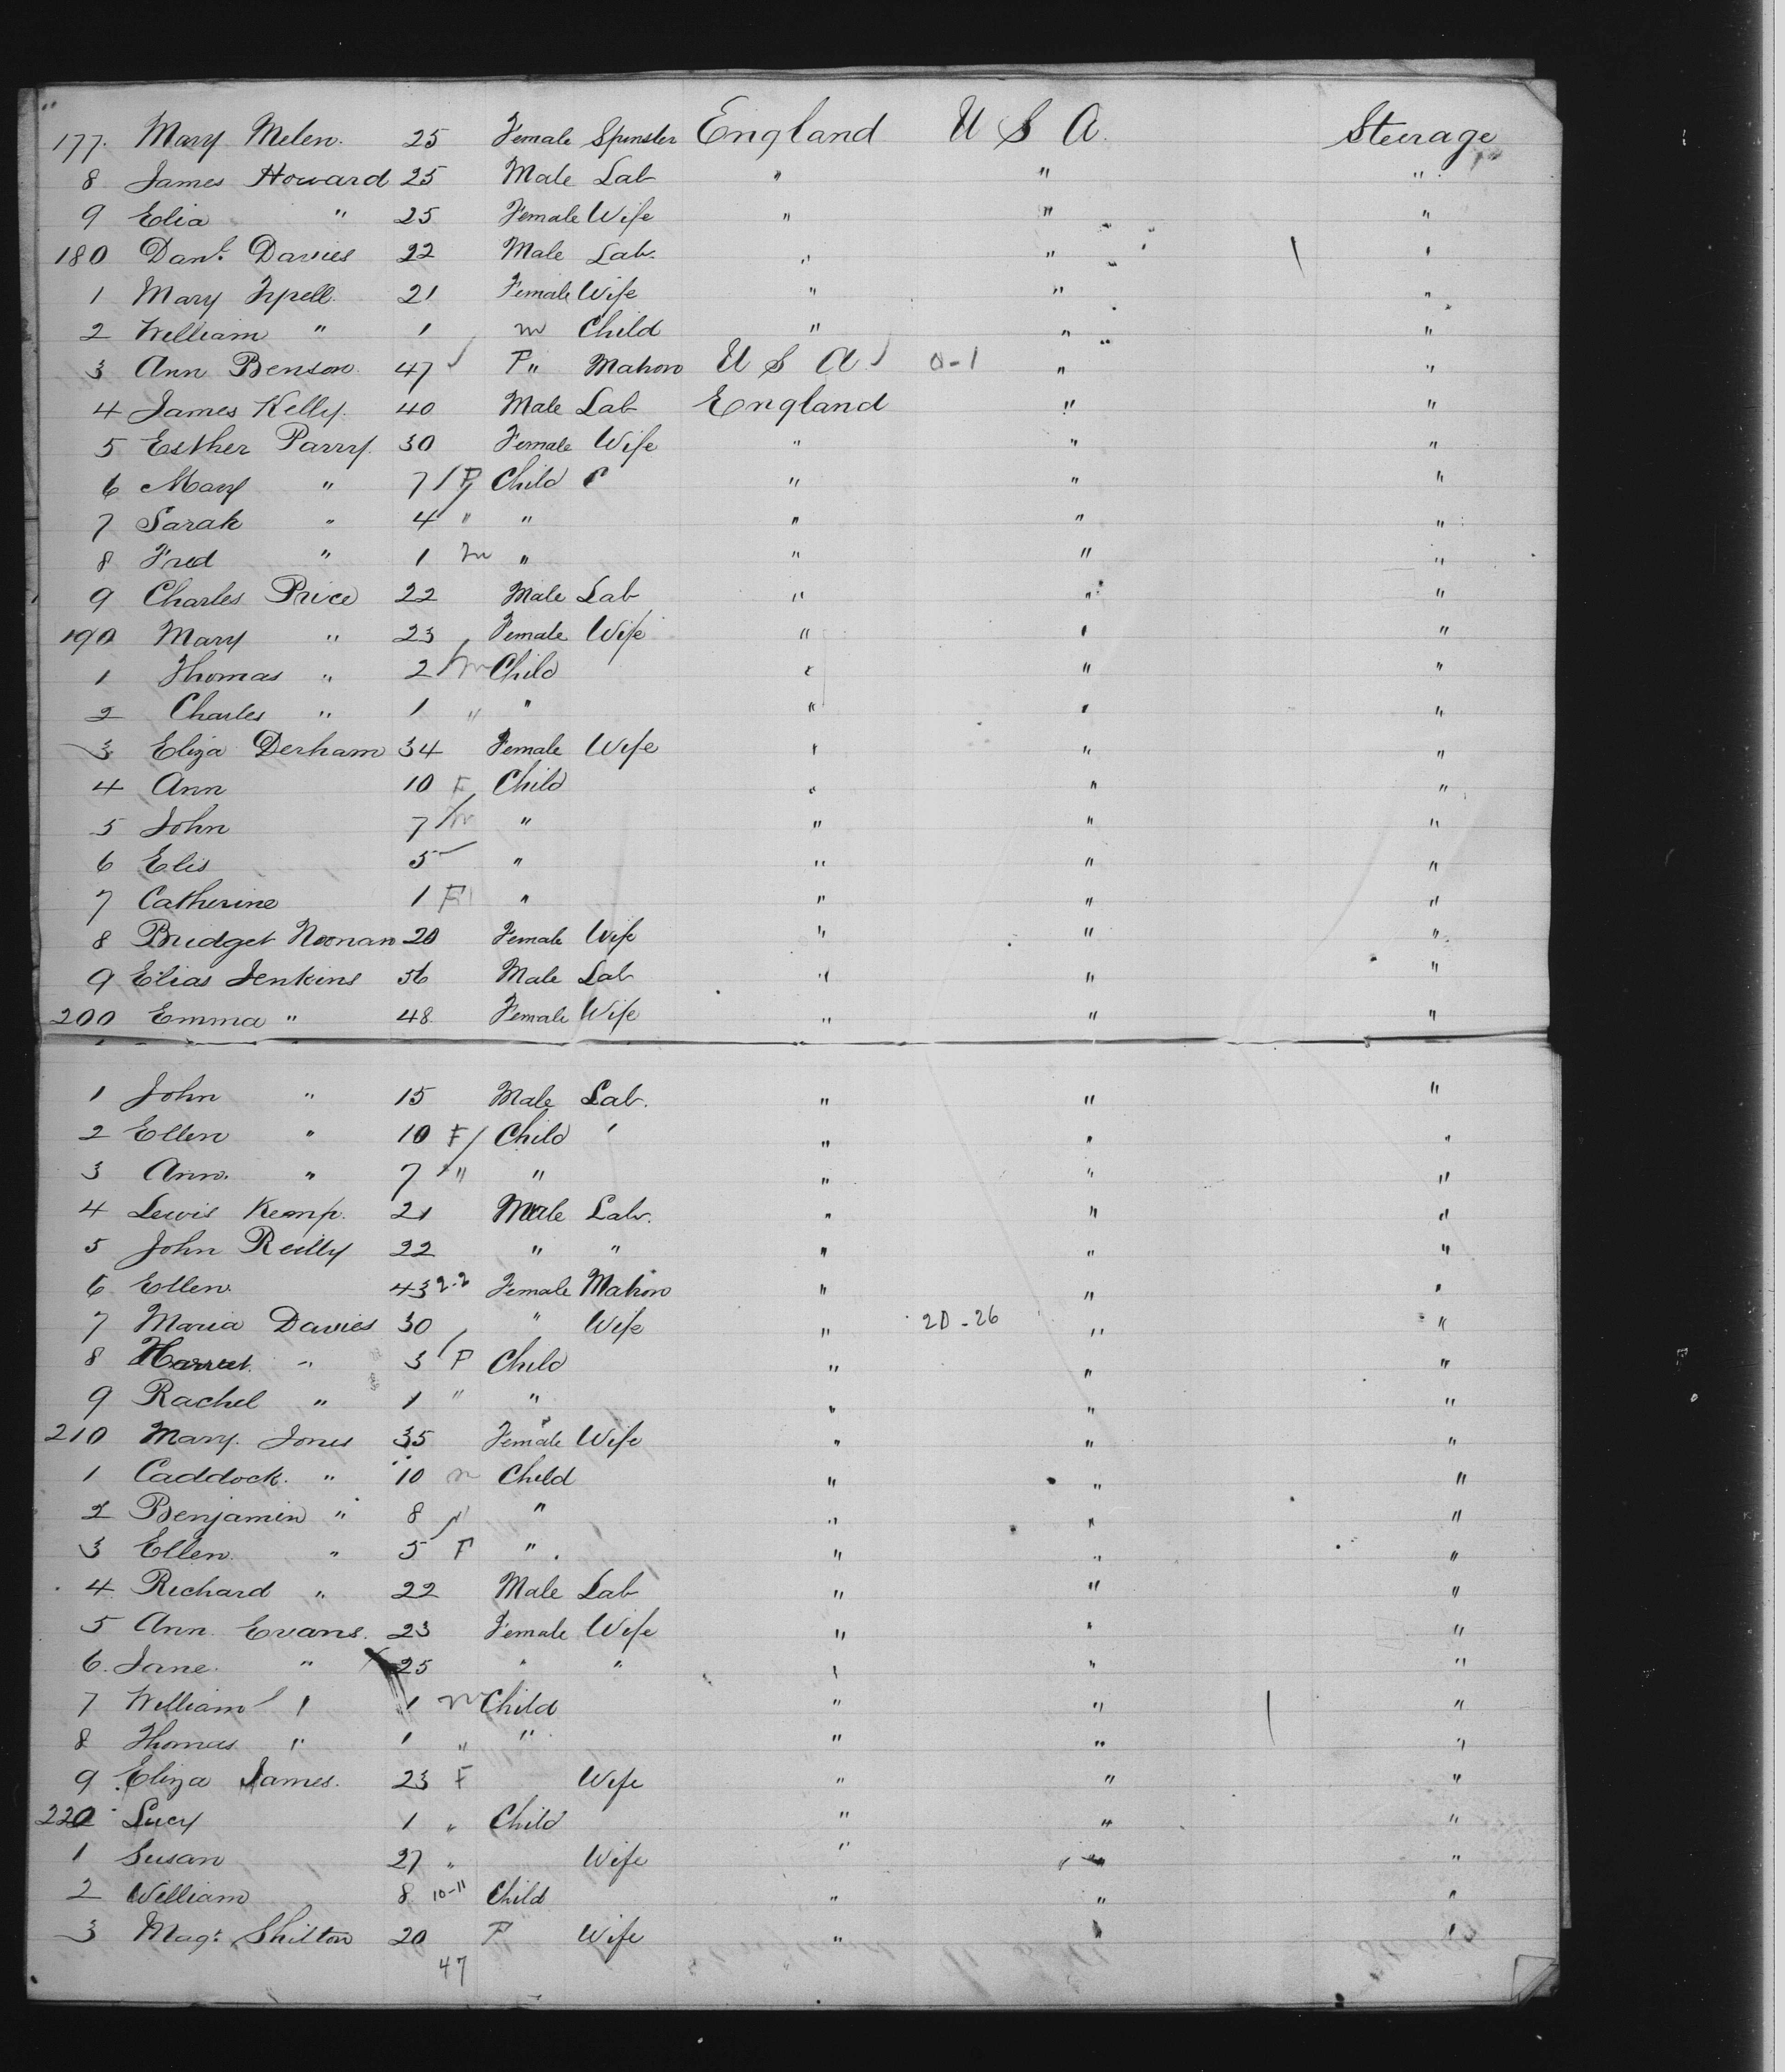 177. Mary Melen. 25 Female Spinster England U S A. Steerage
8 James Howard 25 Male Lab " " "
9 Elia " 25 Female Wife " " "
180 Danl. Davies 22 Male Lab. " " "
1 Mary 21 Female Wife " " "
2 William " 1 m Child " " "
3 Ann Benson 47 F " Matron U S A 0-1 " "
4 James Kelly. 40 Male Lab England " "
5 Esther Parry. 30 Female Wife " " "
6 Mary " 7 F Child " " "
7 Sarah " 4 " " " " "
8 Fred " 1 m " " " "
9 Charles Price 22 Male Lab " " "
190 Mary " 23 Female Wife " " "
1 Thomas " 2 m Child " " "
2 Charles " 1 " " " " "
3 Eliza Derham 34 Female Wife " " "
4 Ann 10 F Child " " "
5 John 7 m " " " "
6 Elis 5 " " " "
7 Catherine 1 F " " " "
8 Bridget Noonan 20 Female Wife " " "
9 Elias Jenkins 56 Male Lab " " "
200 Emma " 48 Female Wife " " "
1 John " 15 Male Lab. " " "
2 Ellen " 10 F Child " " "
3 Ann. " 7 " " " " "
4 Lewis Kemp. 21 Male Lab. " " "
5 John Reilly 22 " " " " "
6 Ellen. 43 2-2 Female Matron " " "
7 Maria Davies 30 " Wife " 20-26 " "
8 Harriet. " 3 F Child " " "
9 Rachel " 1 " " " " "
210 Mary. Jones 35 Female Wife " " "
1 Caddock. " 10 m Child " " "
2 Benjamin " 8 " " " " "
3 Ellen. " 5 F " " " "
4 Richard " 22 Male Lab " " "
5 Ann Evans. 23 Female Wife " " "
6. Jane. " 25 " " " " "
7 William " 1 m Child " " "
8 Thomas " 1 " " " " "
9 Eliza James. 23 F Wife " " "
220 Lucy 1 " Child " " "
1 Susan 27 " Wife " " "
2 William 8 10-11 Child " " "
3 Magt Shilton 20 F Wife " " "
47